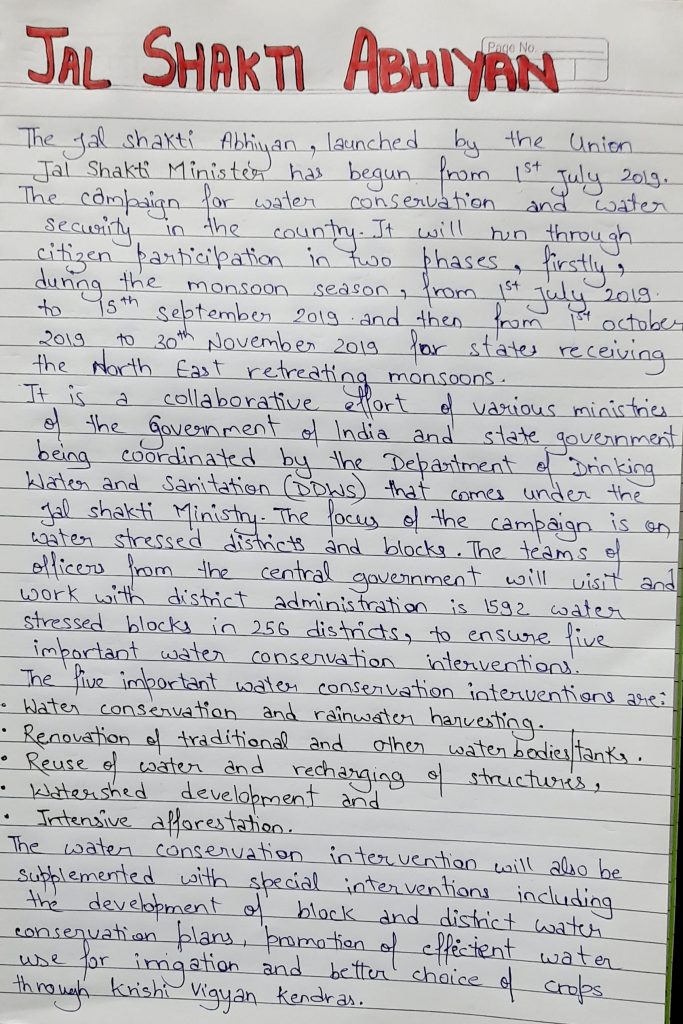 Page No.
JAL SHAKTI ABHIYAN
The Jal shakti Abhiyan, launched by the Union
Jal Shakti Minister has begun from 1st July 2019.
The campaign for water conservation and water
security in the country. It will run through
citizen participation in two phases, firstly,
during the monsoon season, from 1st July 2019.
to 15th september 2019. and then from 1st october
2019 to 30th November 2019 for states receiving
the North East retreating monsoons.
It is a collaborative effort of various ministries
of the Government of India and state government
being coordinated by the Department of Drinking
Water and Sanitation (DDWS) that comes under the
Jal shakti Ministry. The focus of the campaign is on
water stressed districts and blocks. The teams of
officers from the central government will visit and
work with district administration is 1592 water
stressed blocks in 256 districts, to ensure five
important water conservation interventions.
The five important water conservation interventions are:
• Water conservation and rainwater harvesting.
• Renovation of traditional and other water bodies/tanks.
• Reuse of water and recharging of structures,
• Watershed development and
• Intensive afforestation.
The water conservation intervention will also be
supplemented with special interventions including
the development of block and district water
conservation plans, promotion of effectent water
use for irrigation and better choice of crops
through Krishi Vigyan Kendras.